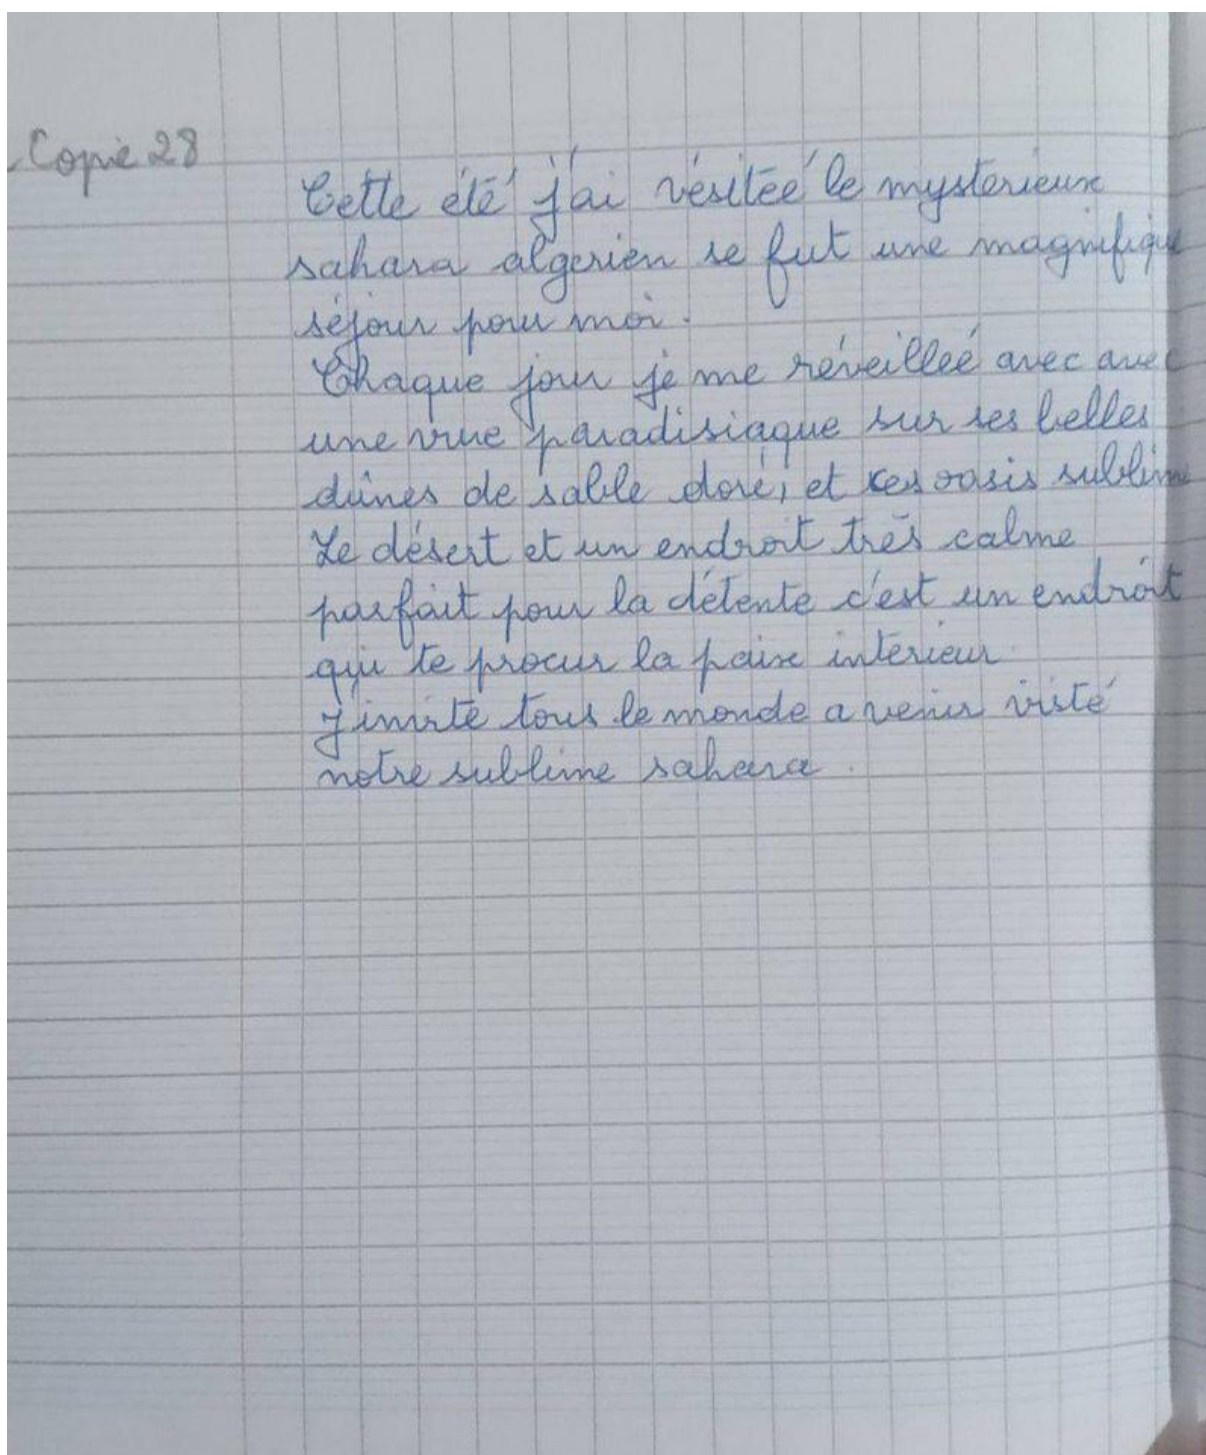 Copie 28
Cette été j'ai vésitée le mysterieux
sahara algerien se fut une magnifique
séjour pour moi.
Chaque jour je me réveilleé avec avec
une vue paradisiaque sur ses belles
dûnes de sable doré, et ces oasis sublime
Le désert et un endroit très calme
parfait pour la détente c'est un endroit
qui te procur la paix interieur.
J'invite tous le monde a venir visté
notre sublime sahara.